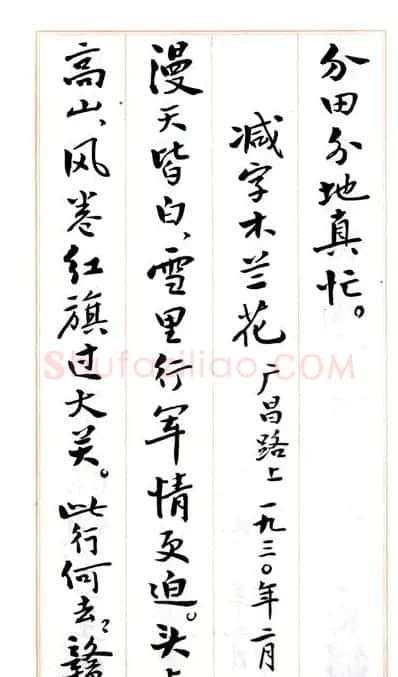 分田分地真忙。
减字木兰花 广昌路上 一九三〇年二月
漫天皆白、雪里行军情更迫。头上
高山、风卷红旗过大关。此行何去？赣
Shufaziliao.COM